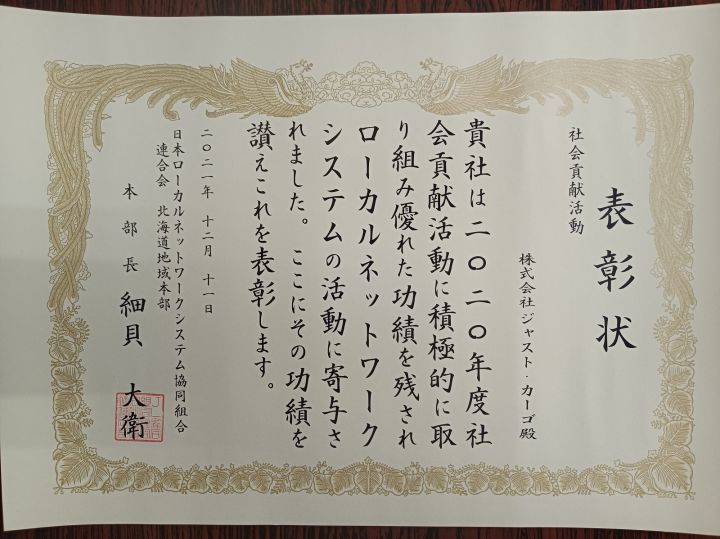 表彰状
社会貢献活動
株式会社ジャスト・カーゴ殿
貴社は二〇二〇年度社
会貢献活動に積極的に取
り組み優れた功績を残され
ローカルネットワーク
システムの活動に寄与さ
れました。ここにその功績を
讃えこれを表彰します。
二〇二一年 十二月 十一日
日本ローカルネットワークシステム協同組合
連合会 北海道地域本部
本部長 細貝 大衛